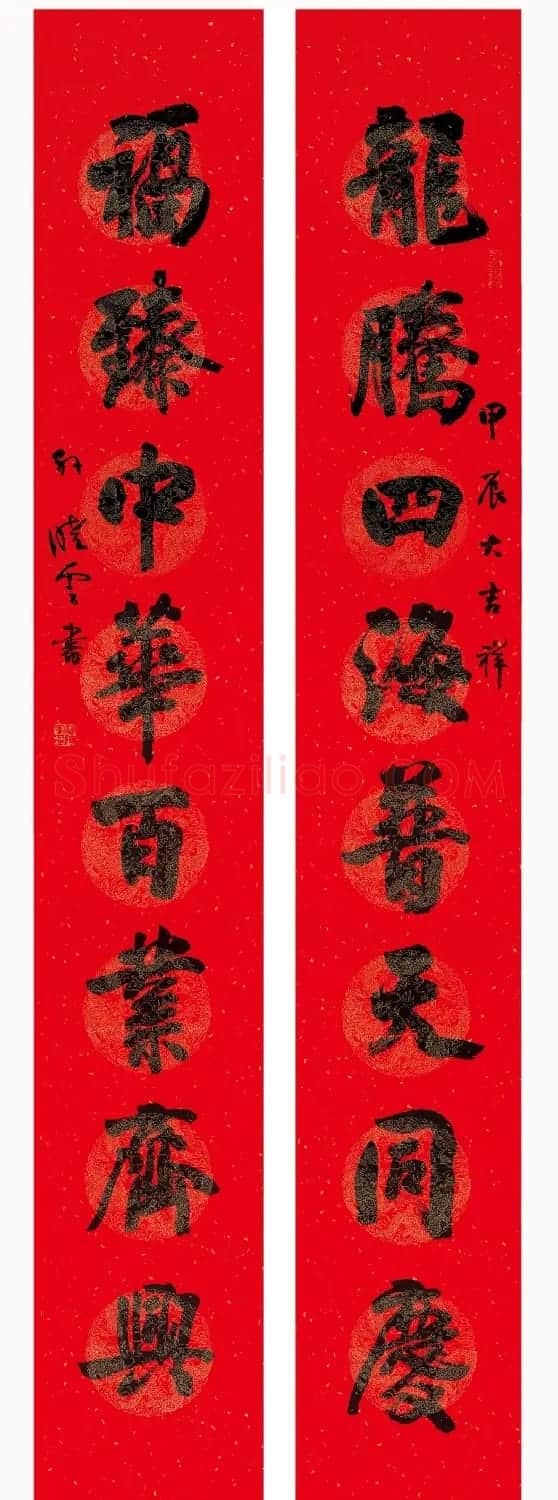 龍騰四海普天同慶
甲辰大吉祥
福臻中華百業齊興
孙晓云書
Shufaziliao.COM